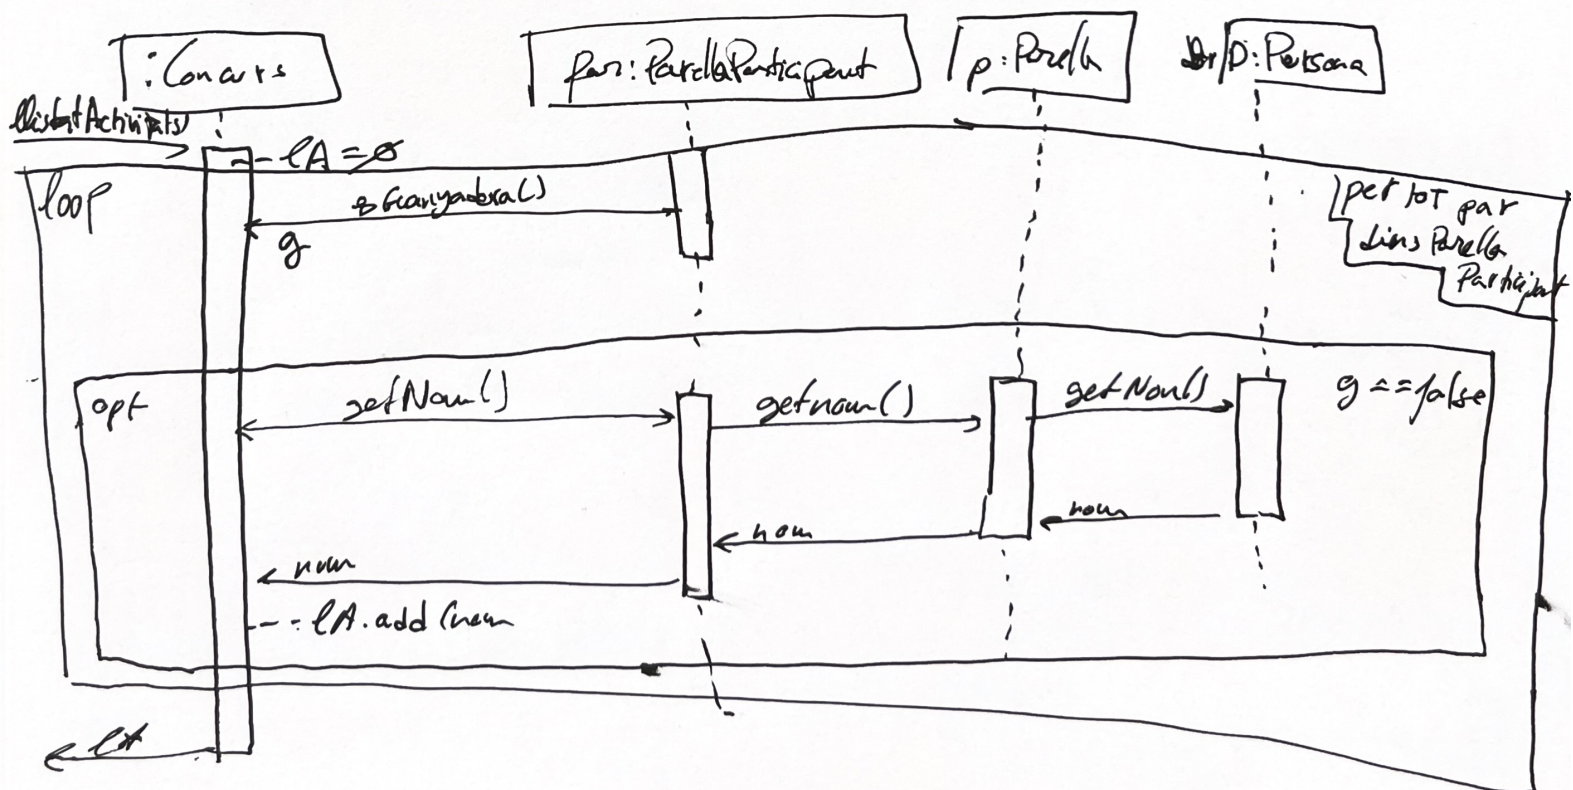 :Concurs
par:ParellaParticipant
p:Parella
D:Persona
llistatActivitats
lA=ø
loop
esGuanyadora()
g
per tot par
dins Parella
Participant
opt
getNom()
getnom()
getNom()
g==false
nom
nom
nom
lA.add(nom
lA